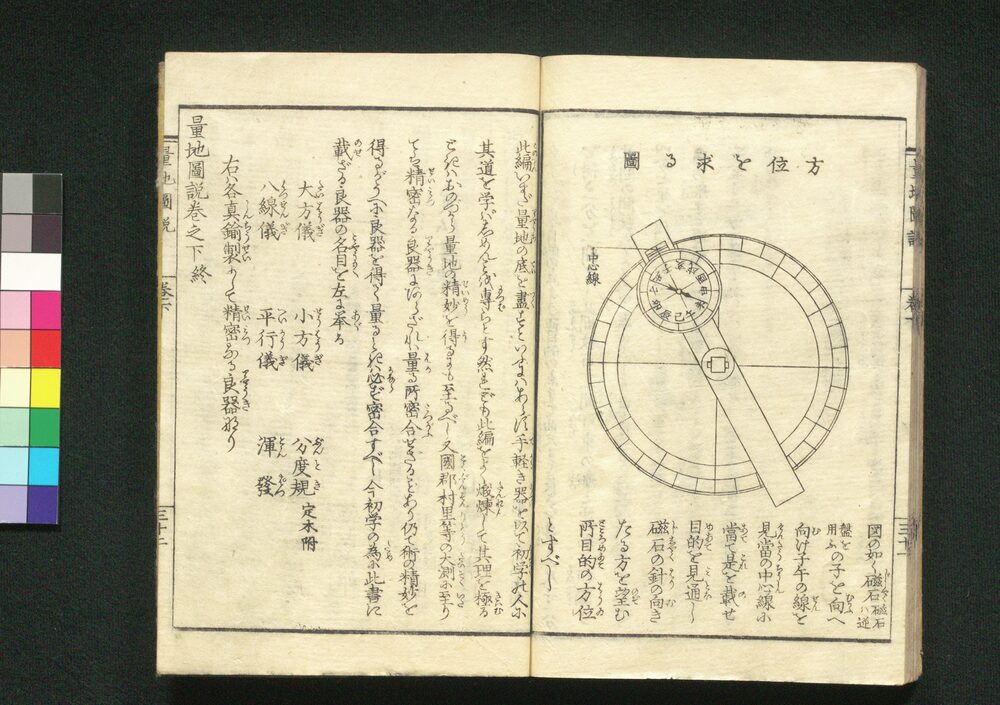 方位を求る圖
中心線
図の如く磁石
磁石ハ逆
盤を用ふの子を向へ
向け子午の線を
見當の中心線に
當て是を載せ
目的を見通し
磁石の針の向き
たる方を望む
所目的の方位
とすべし
此編いまだ量地の底を盡すといふにハあらず手軽き器を以て初学の人に
其道を学バしめんとを專らとす然れども此編をよく煅煉して其理を極る
ときハおのづから量地の精妙を得るにも至るべし又國郡村里等の大測に至り
てハ精密なる良器にあらざれバ量る所密合せざることあり仍て術の精妙を
得るがうへに良器を得て量るときハ必ず密合すべし今初学の為に此書に
載ざる良器の名目を左に挙る
大方儀 小方儀 分度規 定木附
八線儀 平行儀 渾發
右ハ各真鍮製にして精密なる良器なり
量地圖説巻之下終
量地圖説
三十二